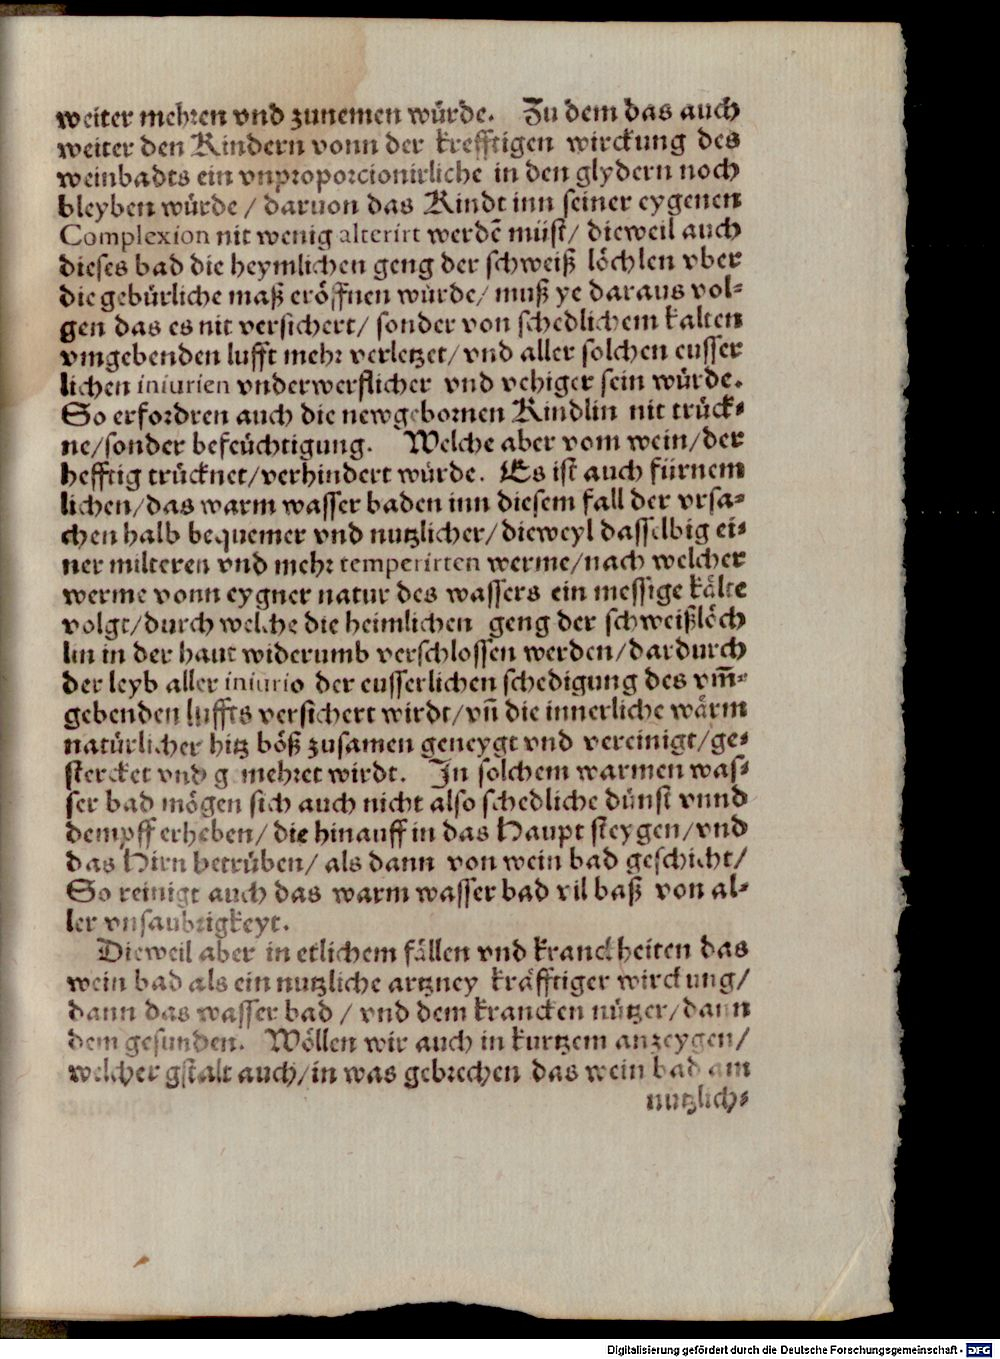 weiter mehren vnd zunemen würde. Zu dem das auch
weiter den Kindern vonn der krefftigen wirckung des
weinbadts ein vnproporcionirliche in den glydern noch
bleyben würde / daruon das Kindt inn seiner eygenen
Complexion nit wenig alterirt werdẽ müst/ dieweil auch
dieses bad die heymlichen geng der schweiß löchlen vber
die gebürliche maß eröffnen würde/ muß ye daraus vol⸗
gen das es nit versichert/ sonder von schedlichem kalten
vmgebenden lufft mehr verletzet/ vnd aller solchen eusser
lichen iniurien vnderwerfflicher vnd vehiger sein würde.
So erfordren auch die newgebornen Kindlin nit trück⸗
ne/sonder befeüchtigung. Welche aber vom wein/der
hefftig trücknet/verhindert würde. Es ist auch fürnem
lichen/das warm wasser baden inn diesem fall der vrsa⸗
chen halb bequemer vnd nutzlicher/dieweyl dasselbig ei⸗
ner milteren vnd mehr temperirten werme/nach welcher
werme vonn eygner natur des wassers ein messige kälte
volgt/durch welche die heimlichen geng der schweißlöch
lin in der haut widerumb verschlossen werden/dardurch
der leyb aller iniurio der eusserlichen schedigung des vm̃⸗
gebenden luffts versichert wirdt/vñ die innerliche wärm
natürlicher hitz böß zusamen geneygt vnd vereinigt/ge⸗
stercket vnd gemehret wirdt. In solchem warmen was⸗
ser bad mögen sich auch nicht also schedliche dünst vnnd
dempff erheben/ die hinauff in das Haupt steygen/vnd
das Hirn betrüben/ als dann von wein bad geschicht/
So reinigt auch das warm wasser bad vil baß von al⸗
ler vnsaubrigkeyt.
Dieweil aber in etlichem fällen vnd kranckheiten das
wein bad als ein nutzliche artzney kräfftiger wirckung/
dann das wasser bad / vnd dem krancken nützer/dann
dem gesunden. Wöllen wir auch in kurtzem anzeygen/
welcher gstalt auch/in was gebrechen das wein bad am
nutzlich⸗
Digitalisierung gefördert durch die Deutsche Forschungsgemeinschaft - DFG